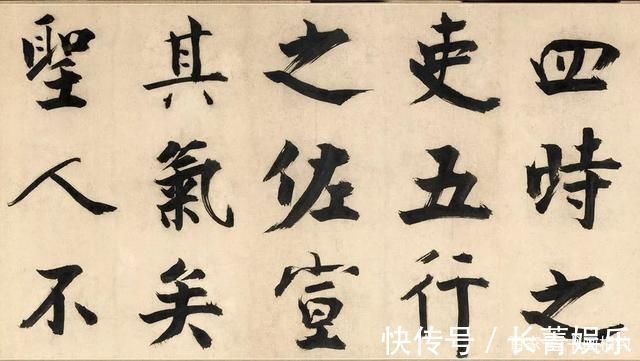 四時之
吏五行
之佐宣
其氣矣
聖人不
快传号 / 长菁娱乐